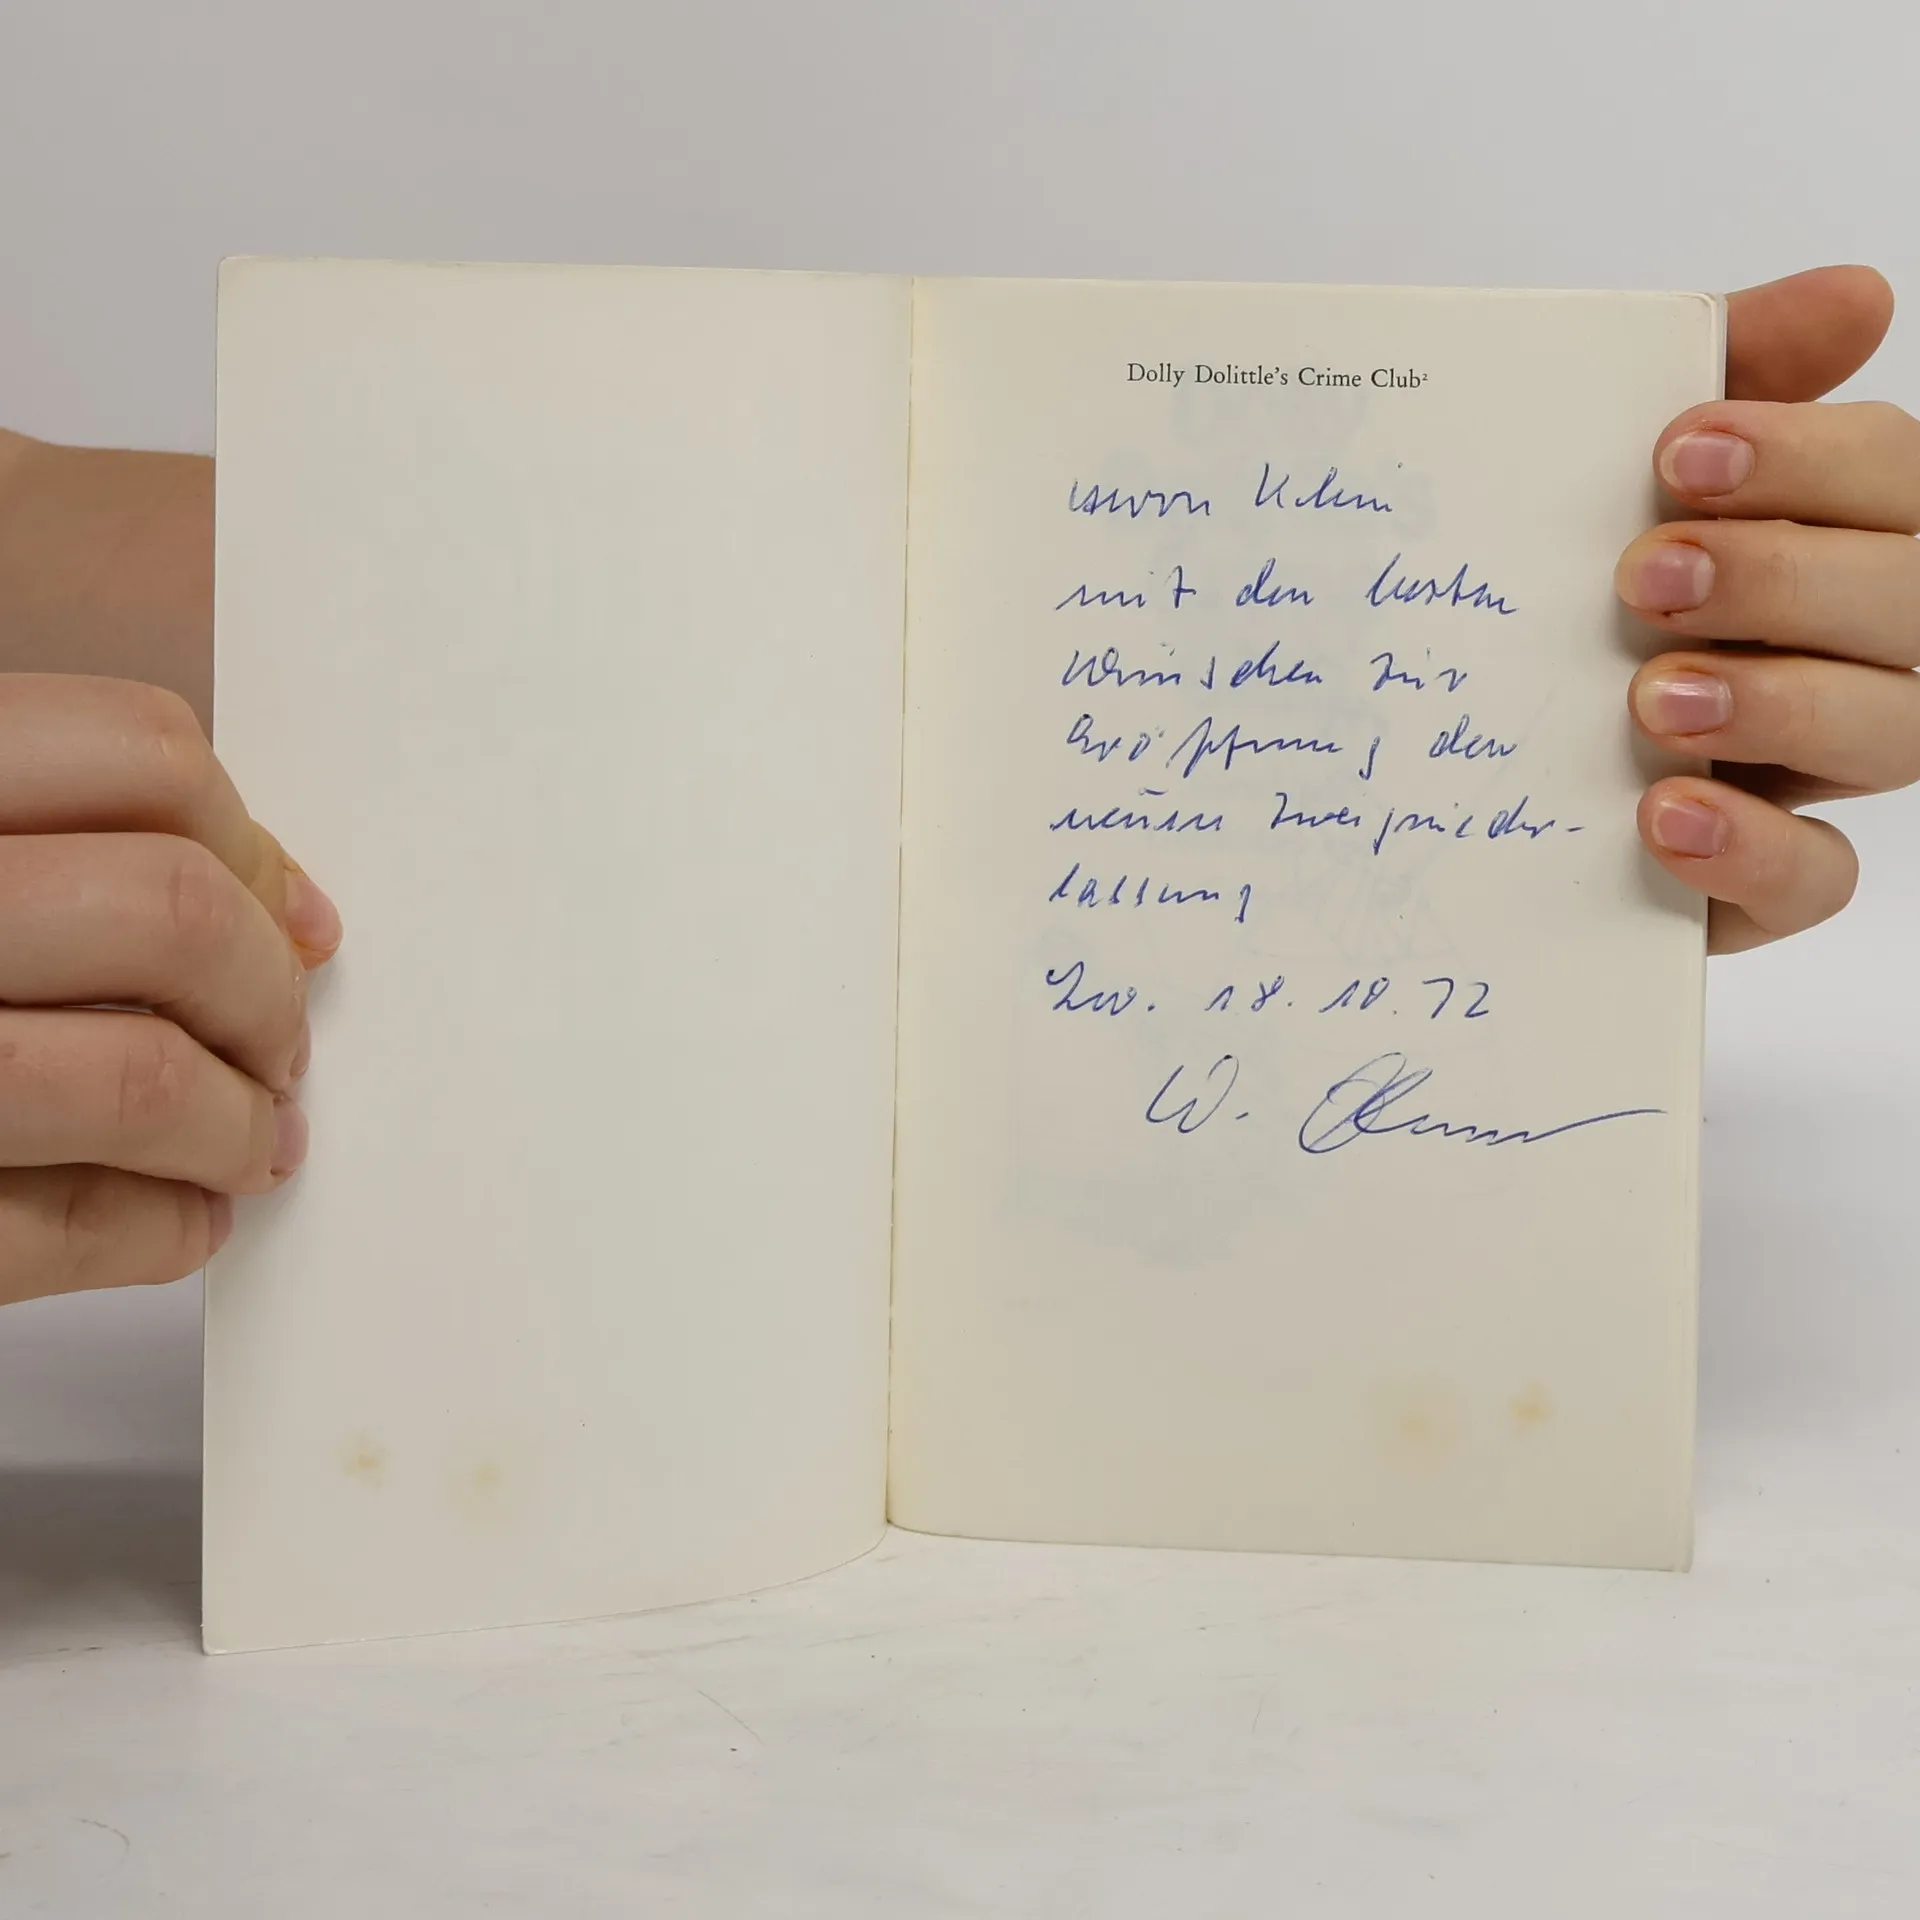 Dolly Dolittle's Crime Club²
Herrn Klein
mit den besten
Wünschen zur
Eröffnung der
neuen Zweignieder-
lassung
Zw. 18.10.72
W.